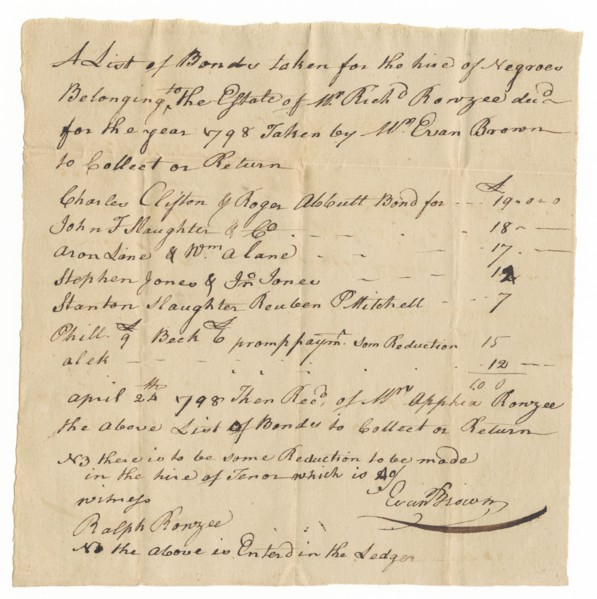 A List of Bonds taken for the hire of Negroes
Belonging to the Estate of Mr Richd Rowzee decd
for the year 1798 Taken by Mr Evan Brown
to Collect or Return
£
Charles Clifton & Roger Abbutt Bond for - - - 19 - 0 - 0
John F Slaughter & Co - - - - 18 - -
Aron Lane & Wm a Lane - - - 17 - -
Stephen Jones & Jno Jones - - - 12
Stanton Slaughter Reuben P Mitchell - - 7
Phill. £9 Beck £6 promp paymt. som Reduction 15
alek - - - - - - 12 - -
april 24th 1798 Then Recd. of Mrs Apphia Rowzee
the above List of Bonds to Collect or Return
NB there is to be some Reduction to be made
in the hire of Tenor which is
Evan Brown
witness
Ralph Rowzee
NB the above is Enterd in the Ledger